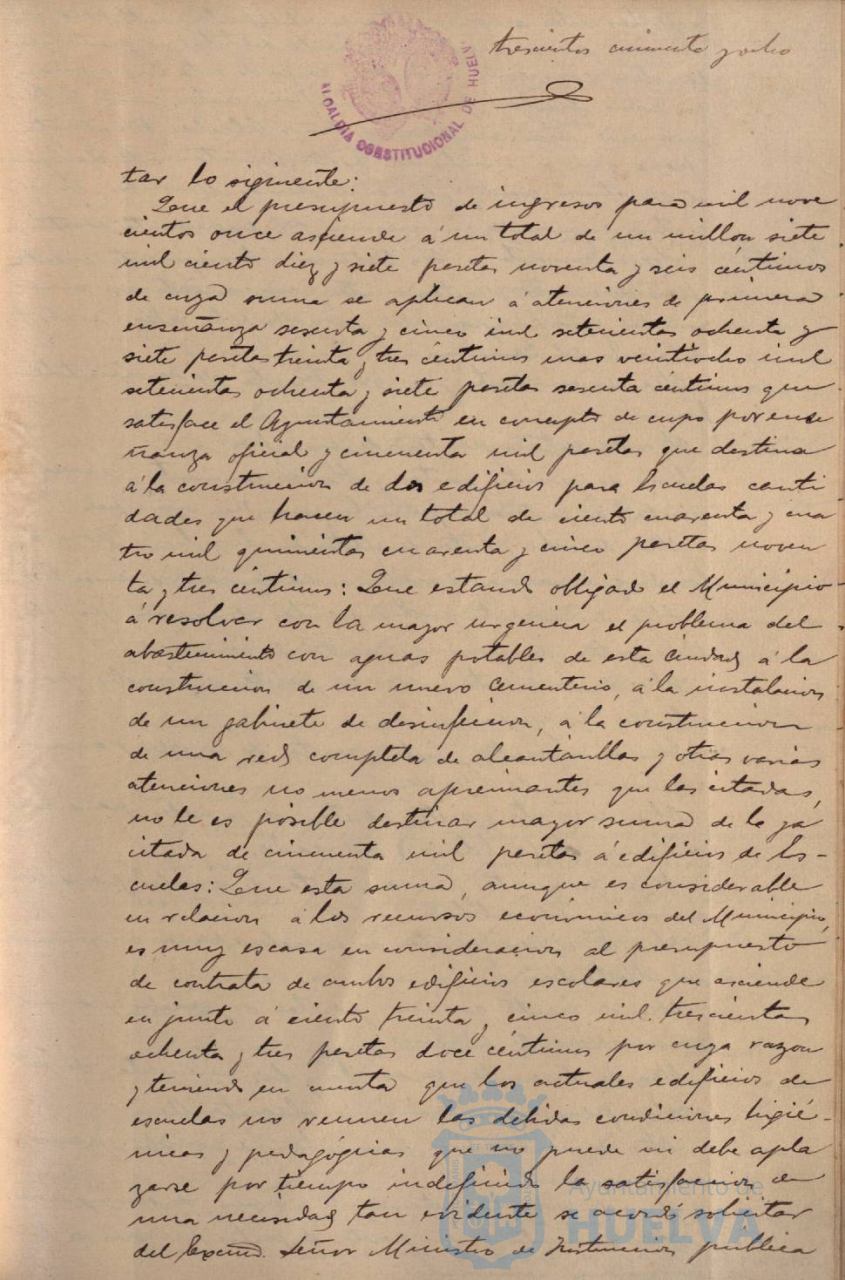 trescientos cincuenta y ocho
ALCALDÍA CONSTITUCIONAL DE HUELVA
tar lo siguiente:
Que el presupuesto de ingresos para mil nove
cientos once asciende á un total de un millon siete
mil ciento diez y siete pesetas noventa y seis céntimos
de cuya suma se aplican á atenciones de primera
enseñanza sesenta y cinco mil setecientas ochenta y
siete pesetas treinta y tres céntimos mas veintiocho mil
setecientas ochenta y siete pesetas sesenta céntimos que
satisface el Ayuntamiento en concepto de cupo por ense
ñanza oficial y cincuenta mil pesetas que destina
á la construccion de dos edificios para Escuelas canti
dades que hacen un total de ciento cuarenta y cua
tro mil quinientas cuarenta y cinco pesetas noven
ta y tres céntimos: Que estando obligado el Municipio
á resolver con la mayor urgencia el problema del
abastecimiento con aguas potables de esta Ciudad, á la
construccion de un nuevo Cementerio, á la instalacion
de un gabinete de desinfeccion, á la construccion
de una red completa de alcantarillas y otras varias
atenciones no menos apremiantes que las citadas,
no le es posible destinar mayor suma de la ya
citada de cincuenta mil pesetas á edificios de Es-
cuelas: Que esta suma, aunque es considerable
en relacion á los recursos económicos del Municipio,
es muy escasa en consideracion al presupuesto
de contrata de ambos edificios escolares que asciende
en junto á ciento treinta y cinco mil trescientas
ochenta y tres pesetas doce céntimos por cuya razon
y teniendo en cuenta que los actuales edificios de
escuelas no reunen las debidas condiciones higié-
nicas y pedagógicas que no puede ni debe apla
zarse por tiempo indefinido la satisfaccion de
una necesidad tan evidente se acordó solicitar
del Excmo. Señor Ministro de Instruccion pública
Ayuntamiento de
HUELVA